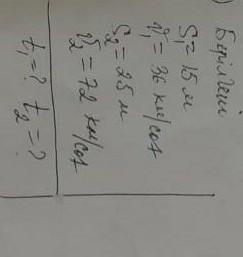 ) Берілгені
S₁ = 15 м
V₁ = 36 км/сағ
S₂ = 25 м
V₂ = 72 км/сағ
t₁ = ? t₂ = ?